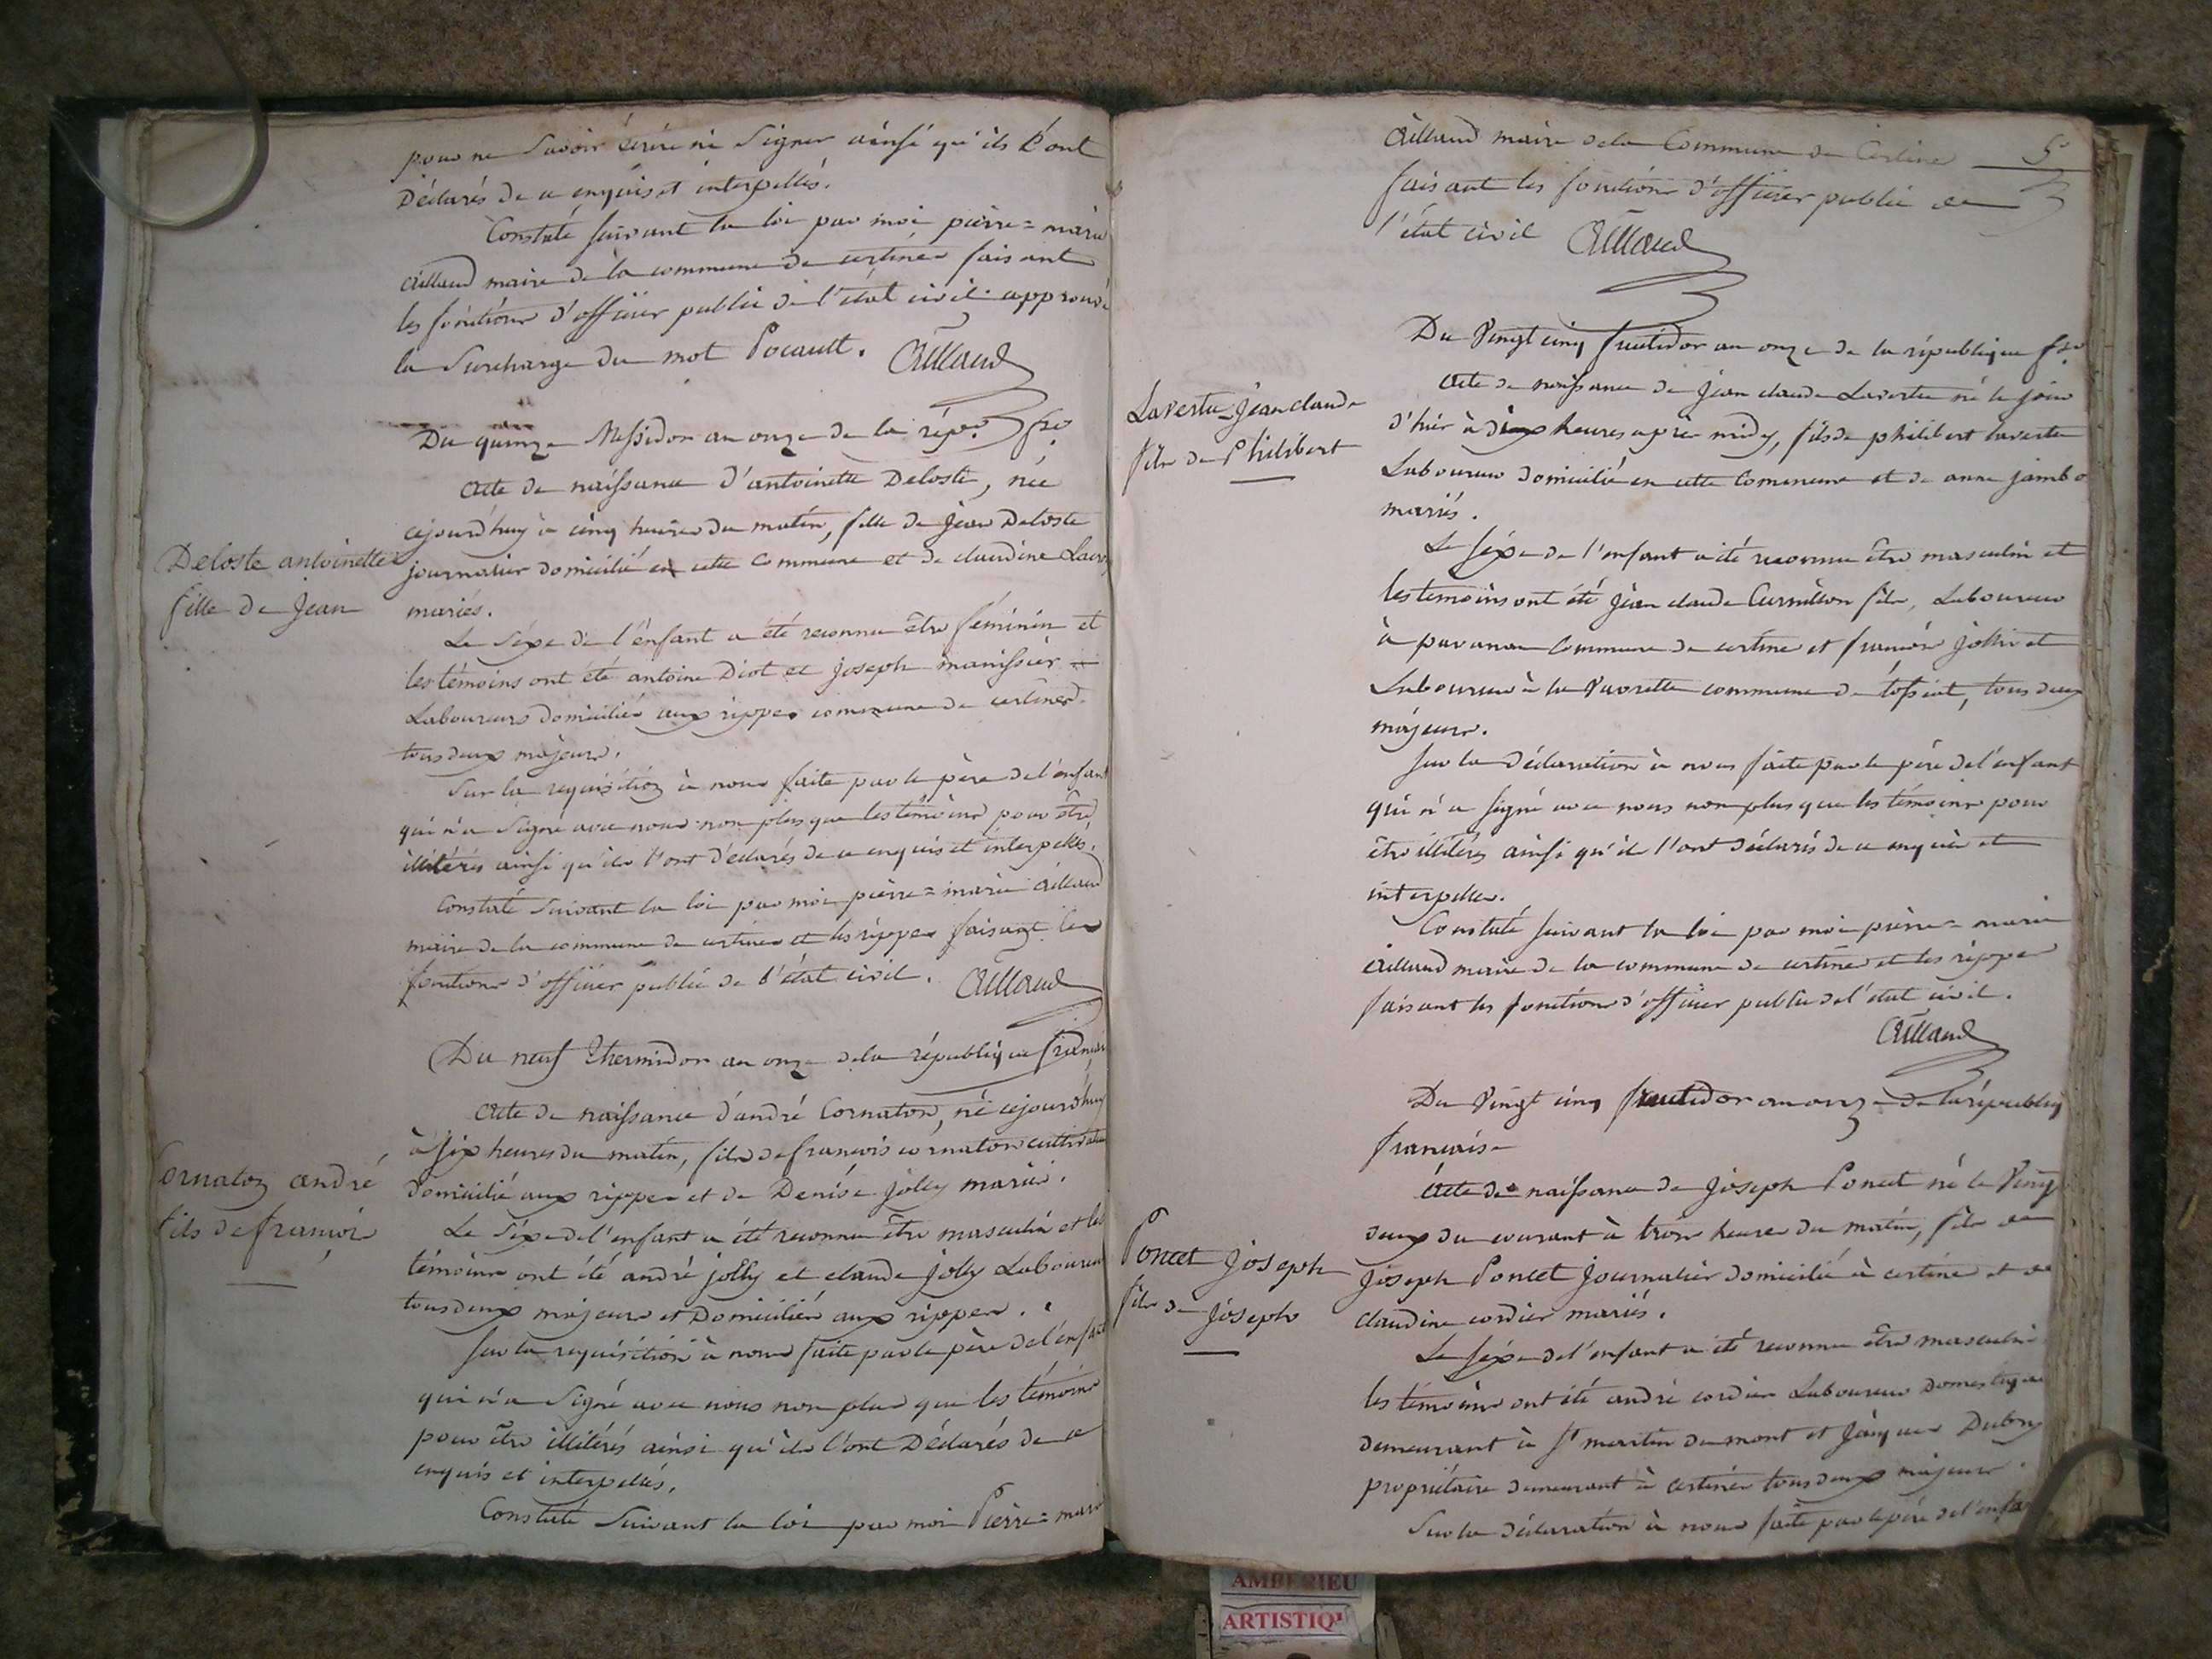 pour ne Savoir écrire ni Signer ainsi qu'ils l'ont
Déclarés de ce enquis et interpellés.
Constaté suivant la loi par moi pierre = marie
Aillaud maire de la commune de certines faisant
les fonctions d'officier public de l'état civil. approuvé
la Surcharge du mot Pocault. Aillaud
Du quinze Messidor an onze de la rép.e fse.
Acte de naissance d'antoinette Deloste, née
cejourd'huy à cinq heures du matin, fille de Jean Deloste
Deloste antoinette
fille de Jean
journalier domicilié en cette commune et de claudine
mariés.
Le Séxe de l'énfant a été reconnu être féminin et
les témoins ont été antoine Diot et joseph manissier
Laboureurs domiciliés aux rippes commune de certines
tous deux majeurs.
Sur la requisition à nous faite par le père de l'enfant
qui n'a Signé avec nous non plus que les témoins pour être
illitérés ainsi qu'ils l'ont déclarés de ce enquis et interpellés.
Constaté Suivant la loi par moi pierre = marie Aillaud
maire de la commune de certines et les rippes faisant les
fonctions d'officier public de l'état civil. Aillaud
Du neuf Thermidor an onze de la république française
Acte de naissance d'andré Cornaton, né cejourd'huy
à six heures du matin, fils de françois cornaton cultivateur
Cornaton andré
fils de françois
domicilié aux rippes et de Denise jolly mariés.
Le Séxe de l'enfant a été reconnu être masculin et les
témoins ont été andré jolly et claude jolly Laboureurs
tous deux majeurs et Domiciliés aux rippes.
Sur la requisition à nous faite par le père de l'enfant
qui n'a Signé avec nous non plus que les témoins
pour être illitérés ainsi qu'ils l'ont Déclarés de ce
enquis et interpellés.
Constaté Suivant la loi par moi Pierre = marie
Aillaud maire de la Commune de Certines 5
faisant les fonctions d'officier public de
l'état civil Aillaud
Du Vingt cinq fructidor an onze de la république fse.
Acte de naissance de jean claude Lavertu né le jour
Lavertu jean claude
fils de Philibert
d'hier à dix heures après midy, fils de philibert lavertu
Laboureur domicilié en cette Commune et de anne jambo
mariés.
Le séxe de l'enfant a été reconnu être masculin et
les temoins ont été jean claude fils, Laboureur
à Commune de certines et françois jolivet
Laboureur à la commune de tossiat, tous deux
majeurs.
Sur la déclaration à nous faite par le père de l'enfant
qui n'a signé avec nous non plus que les témoins pour
être illitérés ainsi qu'ils l'ont déclarés de ce enquis et
interpellés.
Constaté suivant la loi par moi pierre = marie
Aillaud maire de la commune de certines et les rippes
faisant les fonctions d'officier public de l'état civil.
Aillaud
Du Vingt cinq fructidor an onze de la républiq
française
Acte de naissance de joseph Poncet né le Vingt
deux du courant à trois heures du matin, fils de
Poncet joseph
fils de
joseph
joseph Poncet journalier domicilié à certines et de
claudine cordier mariés.
Le séxe de l'enfant a été reconnu être masculin
les témoins ont été andré cordier Laboureur domestique
demeurant à St martin du mont et jacques Dubry
propriétaire demeurant à certines tous deux majeurs.
Sur la déclaration à nous faite par le père de l'enfant
AMBERIEU
ARTISTIQU